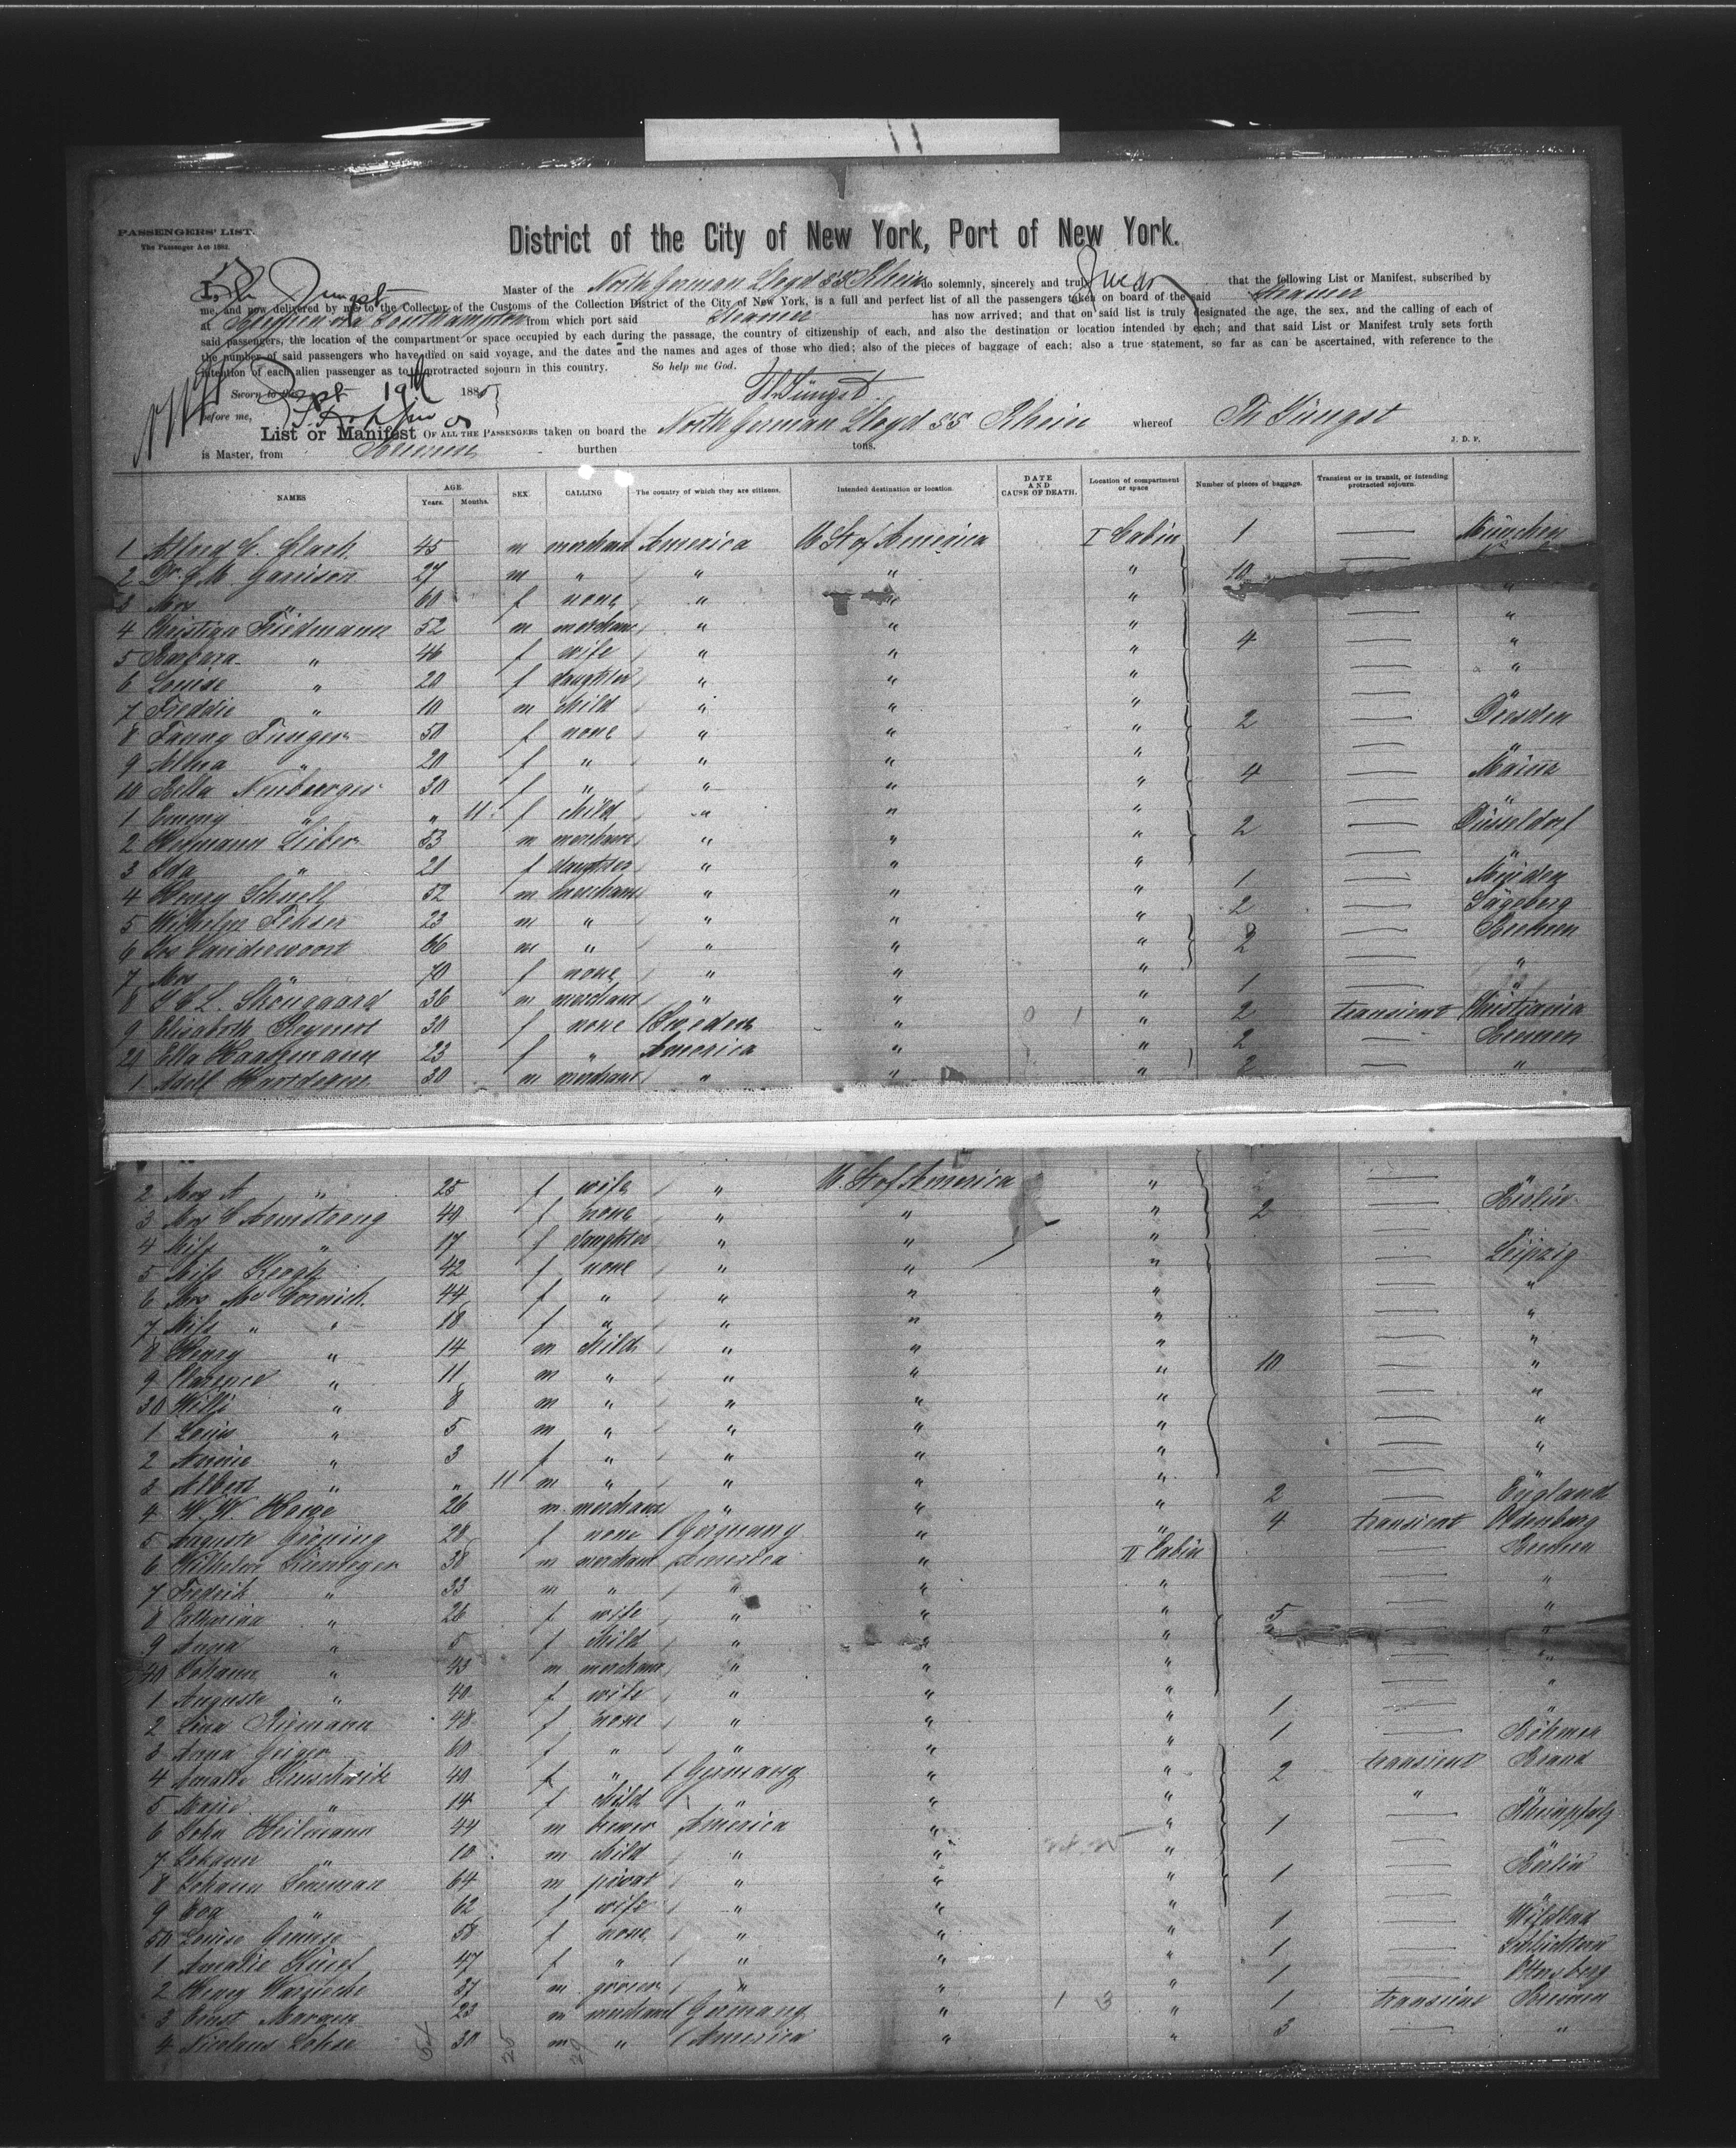 11
PASSENGERS' LIST.
The Passenger Act 1882.
District of the City of New York, Port of New York.
I, Th Jüngst Master of the North German Lloyd SS Rhein do solemnly, sincerely and truly swear that the following List or Manifest, subscribed by
me, and now delivered by me to the Collector of the Customs of the Collection District of the City of New York, is a full and perfect list of all the passengers taken on board of the said Steamer
at Bremen via Southampton from which port said Steamer has now arrived; and that on said list is truly designated the age, the sex, and the calling of each of
said passengers, the location of the compartment or space occupied by each during the passage, the country of citizenship of each, and also the destination or location intended by each; and that said List or Manifest truly sets forth
the number of said passengers who have died on said voyage, and the dates and the names and ages of those who died; also of the pieces of baggage of each; also a true statement, so far as can be ascertained, with reference to the
intention of each alien passenger as to a protracted sojourn in this country. So help me God.
Sworn to this Sept 19th 1885
Th. Jüngst
before me,
List or Manifest OF ALL THE PASSENGERS taken on board the North German Lloyd SS Rhein whereof Th Jüngst
is Master, from Bremen burthen tons. J. D. F.
NAMES AGE. Years. Months. SEX. CALLING The country of which they are citizens. Intended destination or location. DATE AND CAUSE OF DEATH. Location of compartment or space Number of pieces of baggage. Transient or in transit, or intending protracted sojourn.
1 Alfred 45 m merchant America U St of America I Cabin 1 — München
2 Dr. G. M. Garrison 27 m " " " " 10 —
3 Mrs " 60 f none " " " "
4 Christian Friedmann 52 m merchant " " " — "
5 Barbara " 46 f wife " " " 4 — "
6 Louise " 20 f daughter " " " — "
7 Freddie " 10 m child " " " — "
8 Fanny 50 f none " " " 2 — Dresden
9 " 20 f " " " " — "
10 Bella Neuberger 30 f " " " " 4 — Mainz
1 Emmy " " 11 f child " " " — "
2 Hermann Lieber 53 m merchant " " " 2 — Düsseldorf
3 Ida " 21 f daughter " " " — "
4 Henry Schnell 52 m merchant " " " 1 — Minden
5 Wilhelm 23 m " " " " 2 —
6 Jos Vanderwoort 66 m " " " " 2 — Bremen
7 Mrs " 70 f none " " " — "
8 36 m merchant " " " 1 — "
9 Elisabeth Reymert 30 f none Sweden " " 2 transient Christiania
20 Ella Hagemann 23 f " America " " 2 — Bremen
1 Adolf 30 m merchant " " " 2 — "
2 Mrs A " 25 f wife " U. St of America " —
3 Mrs C Armstrong 40 f none " " " 2 — Berlin
4 Miss " 17 f daughter " " " — "
5 Miss Keogh 42 f none " " " — Leipzig
6 Mrs Mc Cormick 44 f " " " " — "
7 Miss " " 18 f " " " " — "
8 Henry " 14 m child " " " — "
9 Clarence " 11 m " " " " 10 — "
30 Willi " 8 m " " " " — "
1 Louis " 5 m " " " " — "
2 Annie " 3 f " " " " — "
3 Albert " " 11 m " " " " —
4 W. W. Howe 26 m merchant " " " 2 — England
5 Auguste Gröning 28 f none Germany " " 4 transient Oldenburg
6 Wilhelm 38 m merchant America " II Cabin — Bremen
7 Fredrik " 33 m " " " " — "
8 Catharina " 26 f wife " " " 5 — "
9 Anna " 5 f child " " " — "
40 Johann " 43 m merchant " " " — "
1 Auguste " 40 f wife " " " — "
2 Lina Riemann 48 f none " " " 1 — "
3 Anna Geiger 60 f " " " " 1 — Böhmen
4 Amalie 40 f " Germany " " 2 transient Brand
5 Marie " 14 f child " " " " "
6 John Heilmann 44 m brewer America " " 1 — Rheinpfalz
7 Johann " 10 m child " " " — "
8 Johann 64 m privat " " " 1 — Berlin
9 Eva " 62 f wife " " " — "
50 Louise 58 f none " " " 1 — Wildbad
1 Amalie 47 f " " " " 1 — Schlüchtern
2 Henry 37 m grocer " " " 1 — Ottersberg
3 Ernst 23 m merchant Germany " 1 3 " 1 transient Bremen
4 Nicolaus Lohse 30 m " America " " 3 — "